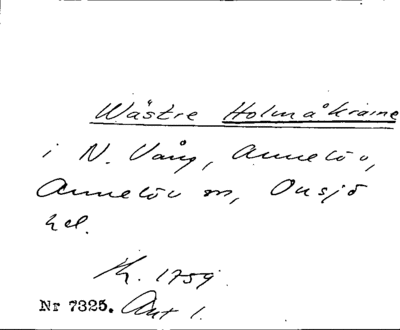 Wästre Holmåkrarne
i N. Vång, Annelöv,
Annelöv sn, Onsjö
hd.
K. 1759.
Nr 7325. Akt 1.